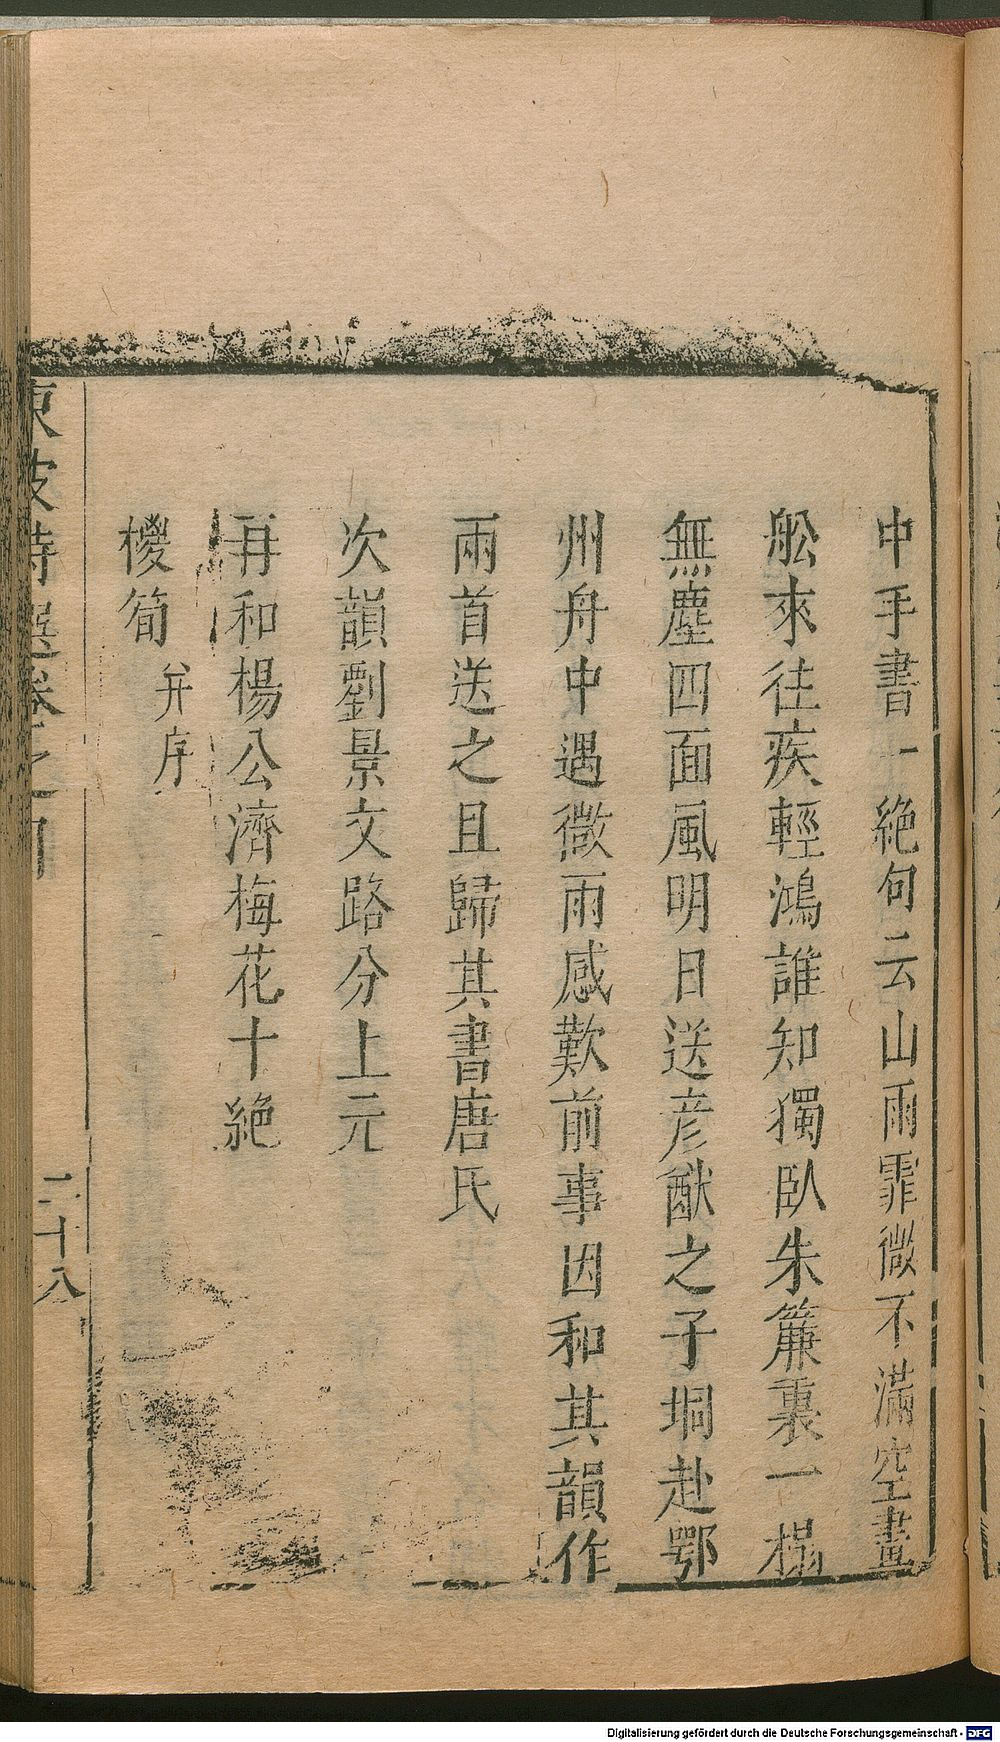 中手書一絶句云山雨霏微不滿空畫
舩來往疾輕鴻誰知獨臥朱簾裏一榻
無塵四面風明日送彦猷之子坰赴鄂
州舟中遇微雨感歎前事因和其韻作
兩首送之且歸其書唐氏
次韻劉景文路分上元
再和楊公濟梅花十絶
椶筍 并序
東坡詩選卷之目
二十八
Digitalisierung gefördert durch die Deutsche Forschungsgemeinschaft - DFG